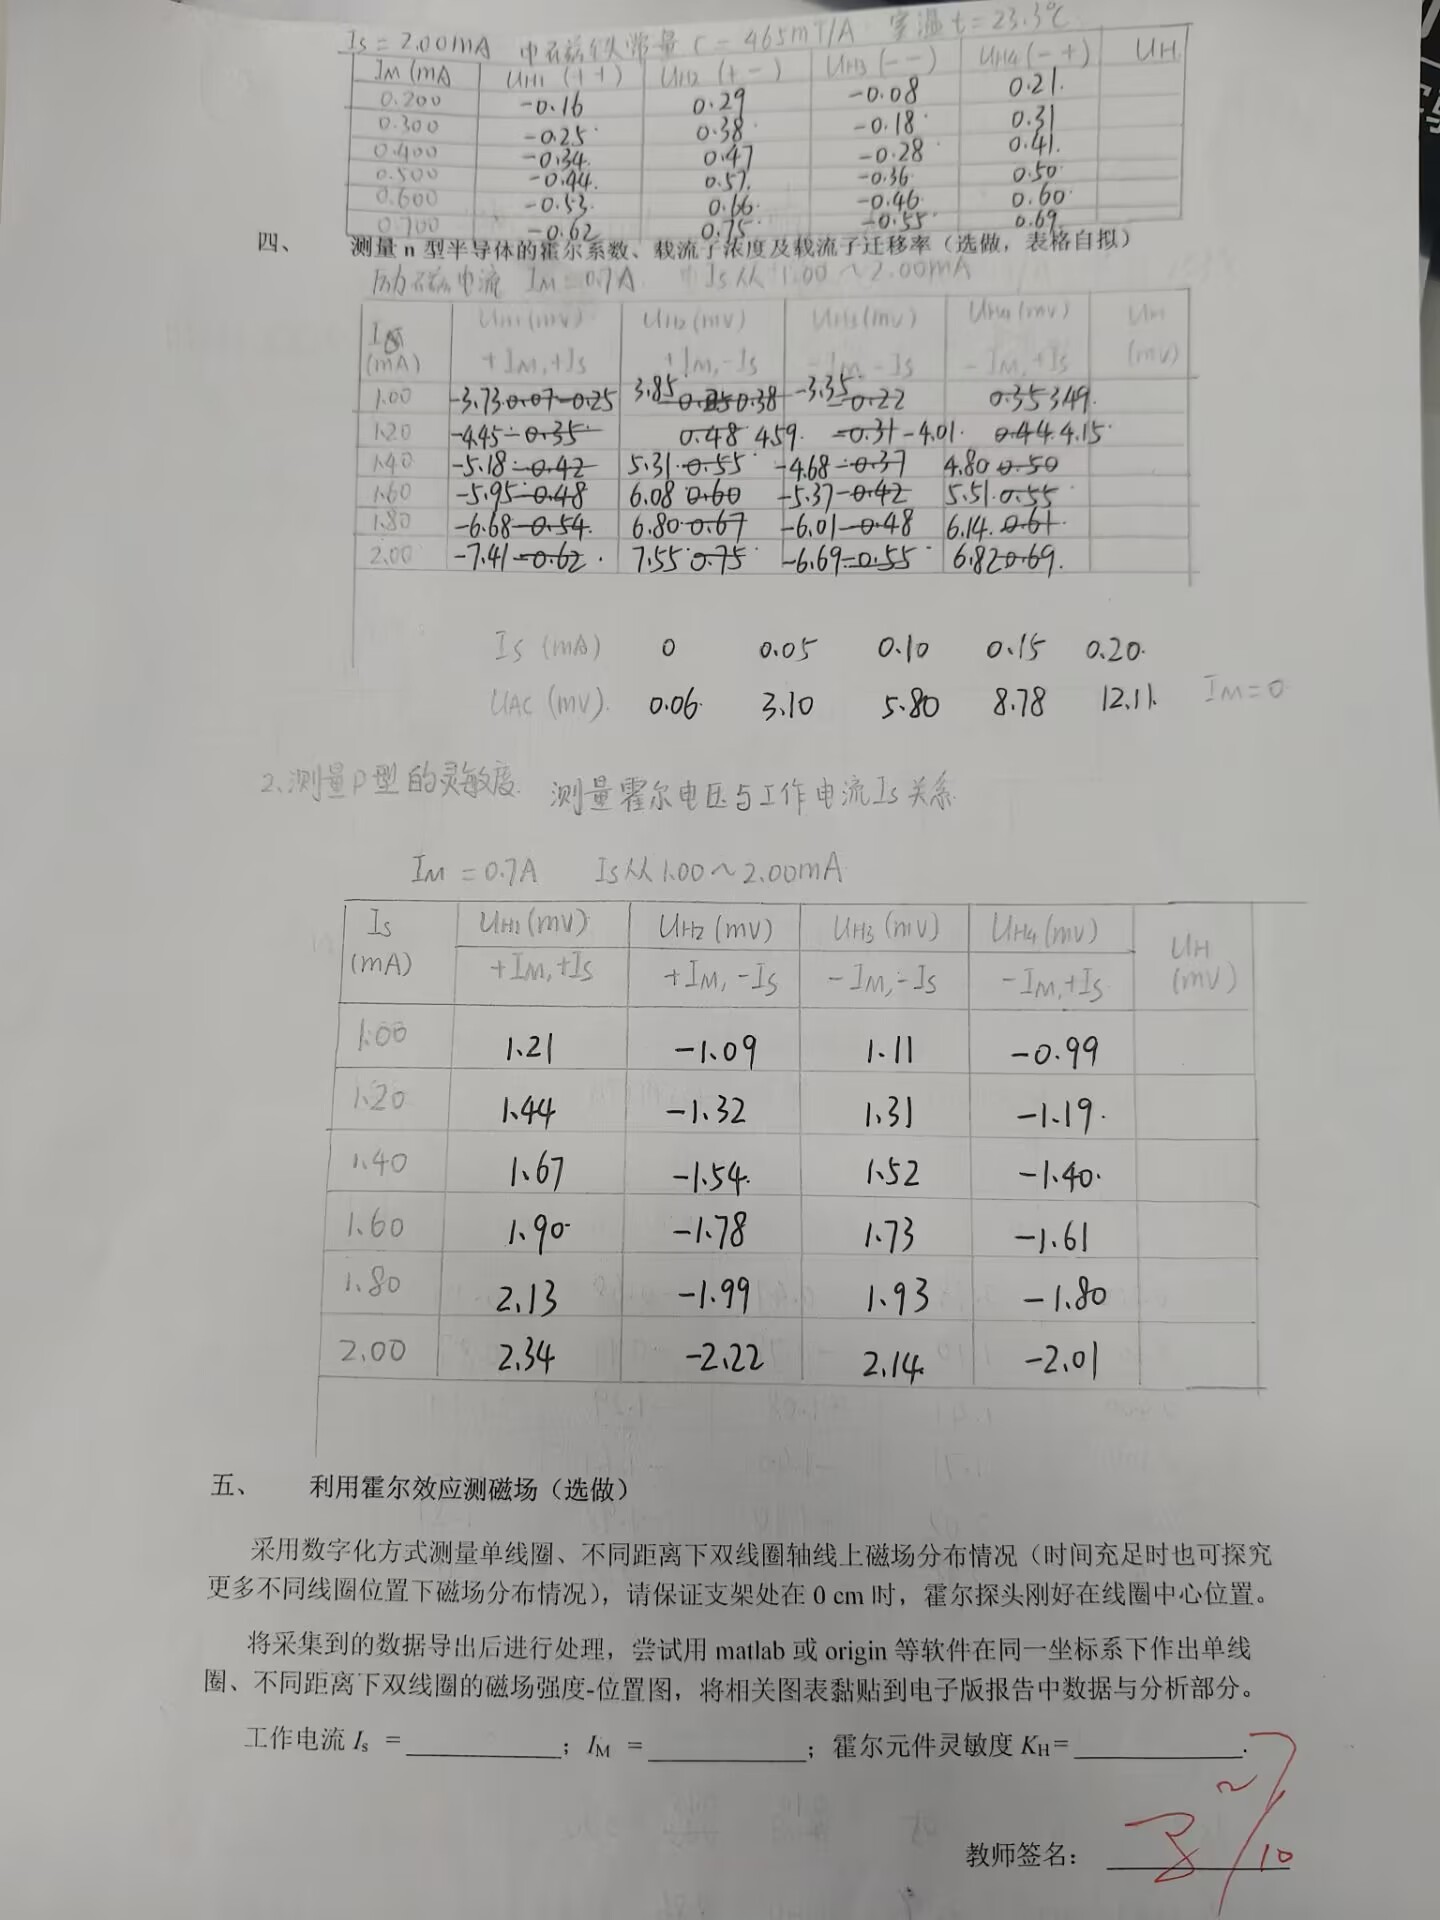 Is = 2.00mA 电磁铁常量 C = 465mT/A 室温 t = 23.3℃
IM (mA UH1 (++) UH2 (+-) UH3 (--) UH4 (-+) UH
0.200 -0.16 0.29 -0.08 0.21
0.300 -0.25 0.38 -0.18 0.31
0.400 -0.34 0.47 -0.28 0.41
0.500 -0.44 0.57 -0.36 0.50
0.600 -0.53 0.66 -0.46 0.60
0.700 -0.62 0.75 -0.55 0.69
四、 测量 n 型半导体的霍尔系数、载流子浓度及载流子迁移率（选做，表格自拟）
励磁电流 IM = 0.7A Is从 1.00 ~ 2.00mA
Is (mA) UH1 (mV) UH2 (mV) UH3 (mV) UH4 (mV) UH (mV)
+IM,+Is +IM,-Is -IM,-Is -IM,+Is
1.00 -3.73 0.07 -0.25 3.85 0.38 -3.35 -0.22 0.35 3.49
1.20 -4.45 -0.35 0.48 4.59 -0.31 -4.01 0.44 4.15
1.40 -5.18 -0.42 5.31 0.55 -4.68 -0.37 4.80 0.50
1.60 -5.95 -0.48 6.08 0.60 -5.37 -0.42 5.51 0.55
1.80 -6.68 -0.54 6.80 0.67 -6.01 -0.48 6.14 0.61
2.00 -7.41 -0.62 7.55 0.75 -6.69 -0.55 6.82 0.69
Is (mA) 0 0.05 0.10 0.15 0.20
UAC (mV) 0.06 3.10 5.80 8.78 12.11 IM = 0
2、测量P型的灵敏度 测量霍尔电压与工作电流Is关系
IM = 0.7A Is从 1.00 ~ 2.00mA
Is (mA) UH1 (mV) UH2 (mV) UH3 (mV) UH4 (mV) UH (mV)
+IM,+Is +IM,-Is -IM,-Is -IM,+Is
1.00 1.21 -1.09 1.11 -0.99
1.20 1.44 -1.32 1.31 -1.19
1.40 1.67 -1.54 1.52 -1.40
1.60 1.90 -1.78 1.73 -1.61
1.80 2.13 -1.99 1.93 -1.80
2.00 2.34 -2.22 2.14 -2.01
五、 利用霍尔效应测磁场（选做）
采用数字化方式测量单线圈、不同距离下双线圈轴线上磁场分布情况（时间充足时也可探究
更多不同线圈位置下磁场分布情况），请保证支架处在 0 cm 时，霍尔探头刚好在线圈中心位置。
将采集到的数据导出后进行处理，尝试用 matlab 或 origin 等软件在同一坐标系下作出单线
圈、不同距离下双线圈的磁场强度-位置图，将相关图表黏贴到电子版报告中数据与分析部分。
工作电流 Is = ________； IM = ________； 霍尔元件灵敏度 KH= ________.
教师签名：